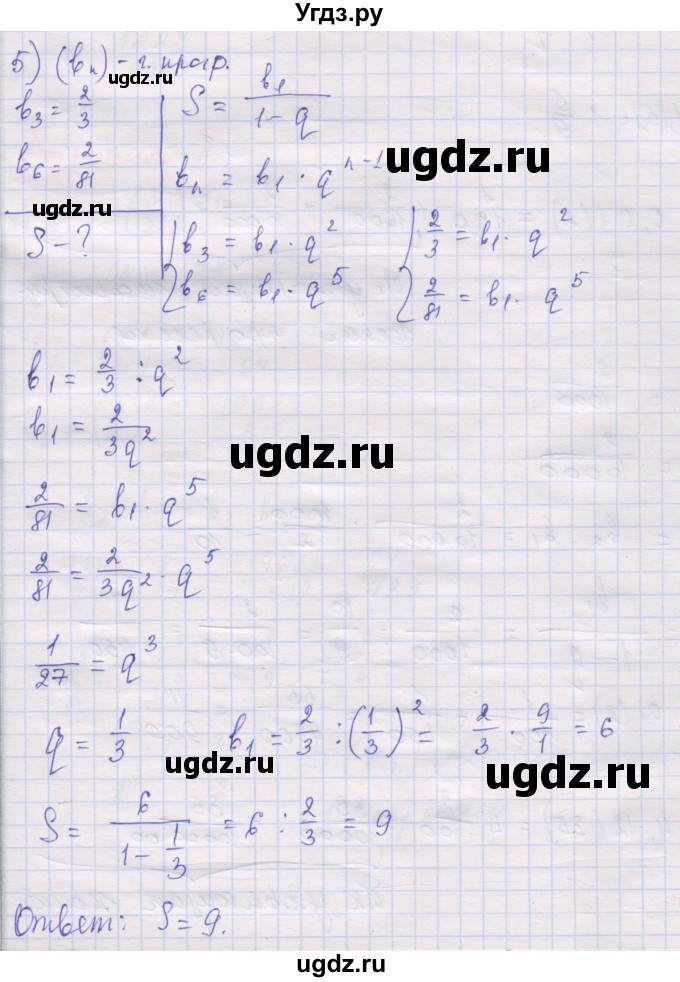 Угдз.ру
5) (bₙ) - г. прогр.
ugdz.ru
b₃ = 2/3
S = b₁/(1 - q)
ugdz.ru
b₆ = 2/81
bₙ = b₁ · qⁿ⁻¹
ugdz.ru
S - ?
{ b₃ = b₁ · q²
{ b₆ = b₁ · q⁵
{ 2/3 = b₁ · q²
{ 2/81 = b₁ · q⁵
b₁ = 2/3 : q²
b₁ = 2/(3q²)
ugdz.ru
2/81 = b₁ · q⁵
2/81 = 2/(3q²) · q⁵
ugdz.ru
1/27 = q³
q = 1/3 b₁ = 2/3 : (1/3)² = 2/3 · 9/1 = 6
ugdz.ru
ugdz.ru
S = 6/(1 - 1/3) = 6 : 2/3 = 9
Ответ: S = 9.
ugdz.ru